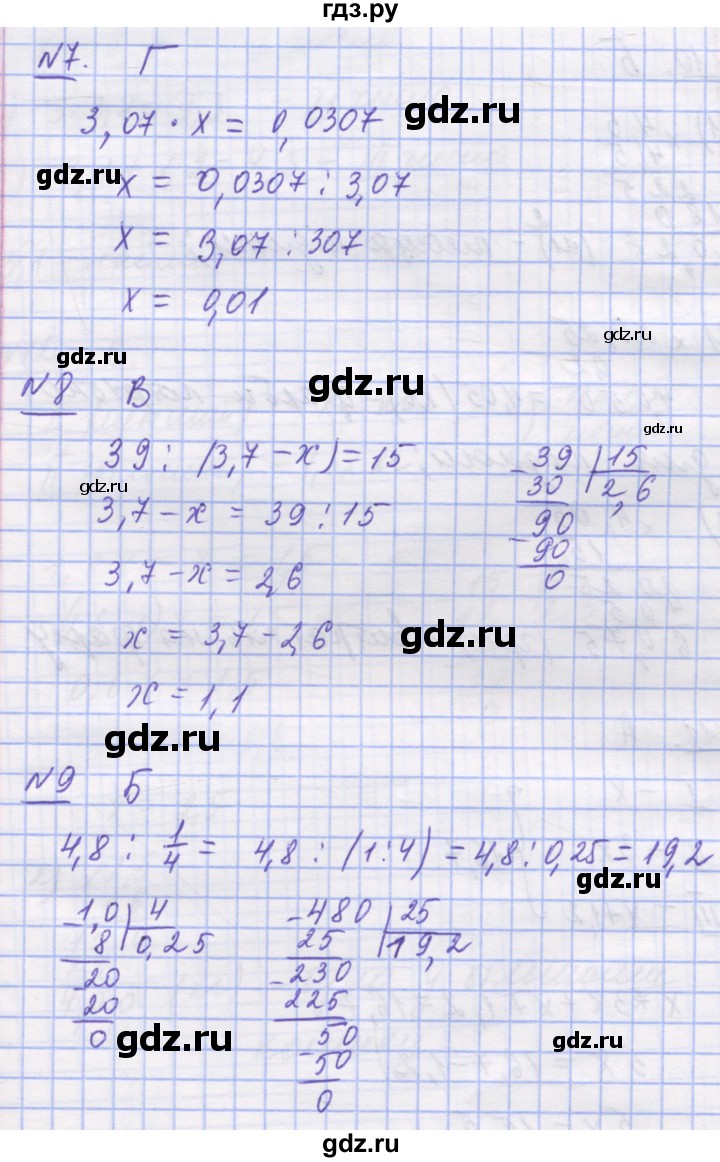 гдз.ру
№7. Г
3,07 · x = 0,0307
gdz.ru
gdz.ru
x = 0,0307 : 3,07
x = 3,07 : 307
x = 0,01
gdz.ru
gdz.ru
gdz.ru
№8 В
gdz.ru
39 : (3,7 - x) = 15
gdz.ru
3,7 - x = 39 : 15
3,7 - x = 2,6
x = 3,7 - 2,6
gdz.ru
x = 1,1
- 39 | 15
30 | 2,6
- 90
90
0
gdz.ru
№9 Б
4,8 : 1/4 = 4,8 : (1 : 4) = 4,8 : 0,25 = 19,2
gdz.ru
- 1,0 | 4
8 | 0,25
- 20
20
0
- 480 | 25
25 | 19,2
- 230
225
- 50
50
0
gdz.ru
gdz.ru
gdz.ru